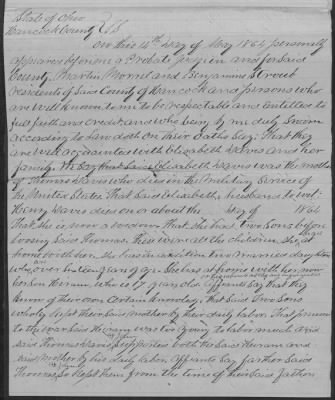 State of Ohio
Hancock County SS
on this 14th Day of May 1864 personally
appeared before me a Probate Judge in and for said
County, Martin and Benjamin Stroub
residents of Said County of Hancock and persons who
are well known to me to be respectable and Entitled to
full faith and Credit and who being by me duly Sworn
according to law doth on their oaths Say: That they
are well acquainted with Elizabeth Davis and her
family. We Say that Said Elizabeth Davis was the mother
of Thomas Davis who died in the Military Service of
the United States That Said Elizabeths husband to wit:
Henry Davis died on or about the Day of 1864
That she is now a widow. That she had Two Sons before
loosing Said Thomas. These were all the children She had at
home with her. She has in addition two married daughters
who are over sixteen years of age. She lives at home with her now
her Son Hiram, who is 17 years old. Affiants Say that they
know of their own Certain Knowledge that Said Two Sons
wholy Kept their Said mother by their daily labor. That previous
to the war Said Hiram was too young to labor much and
said Thomas Davis supported both the Said Hiram and
said mother by his daily labor. Affiants Say farther Said
Thomas, so Kept them from the time of their Said father